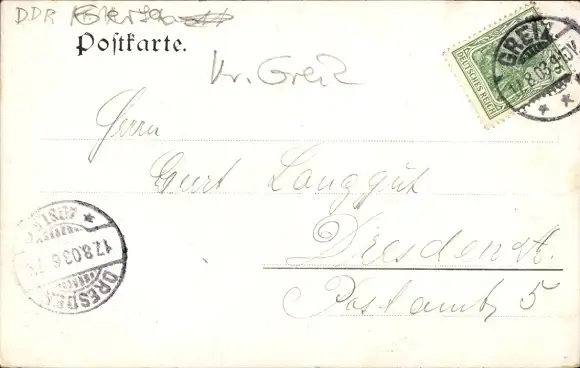 DDR
Postkarte.
Kr. Greiz
DEUTSCHES REICH
GREIZ
17.8.03.
Herrn
Curt Langgut
Dresden A.
Postamt 5
17.8.03.6
DRESDEN